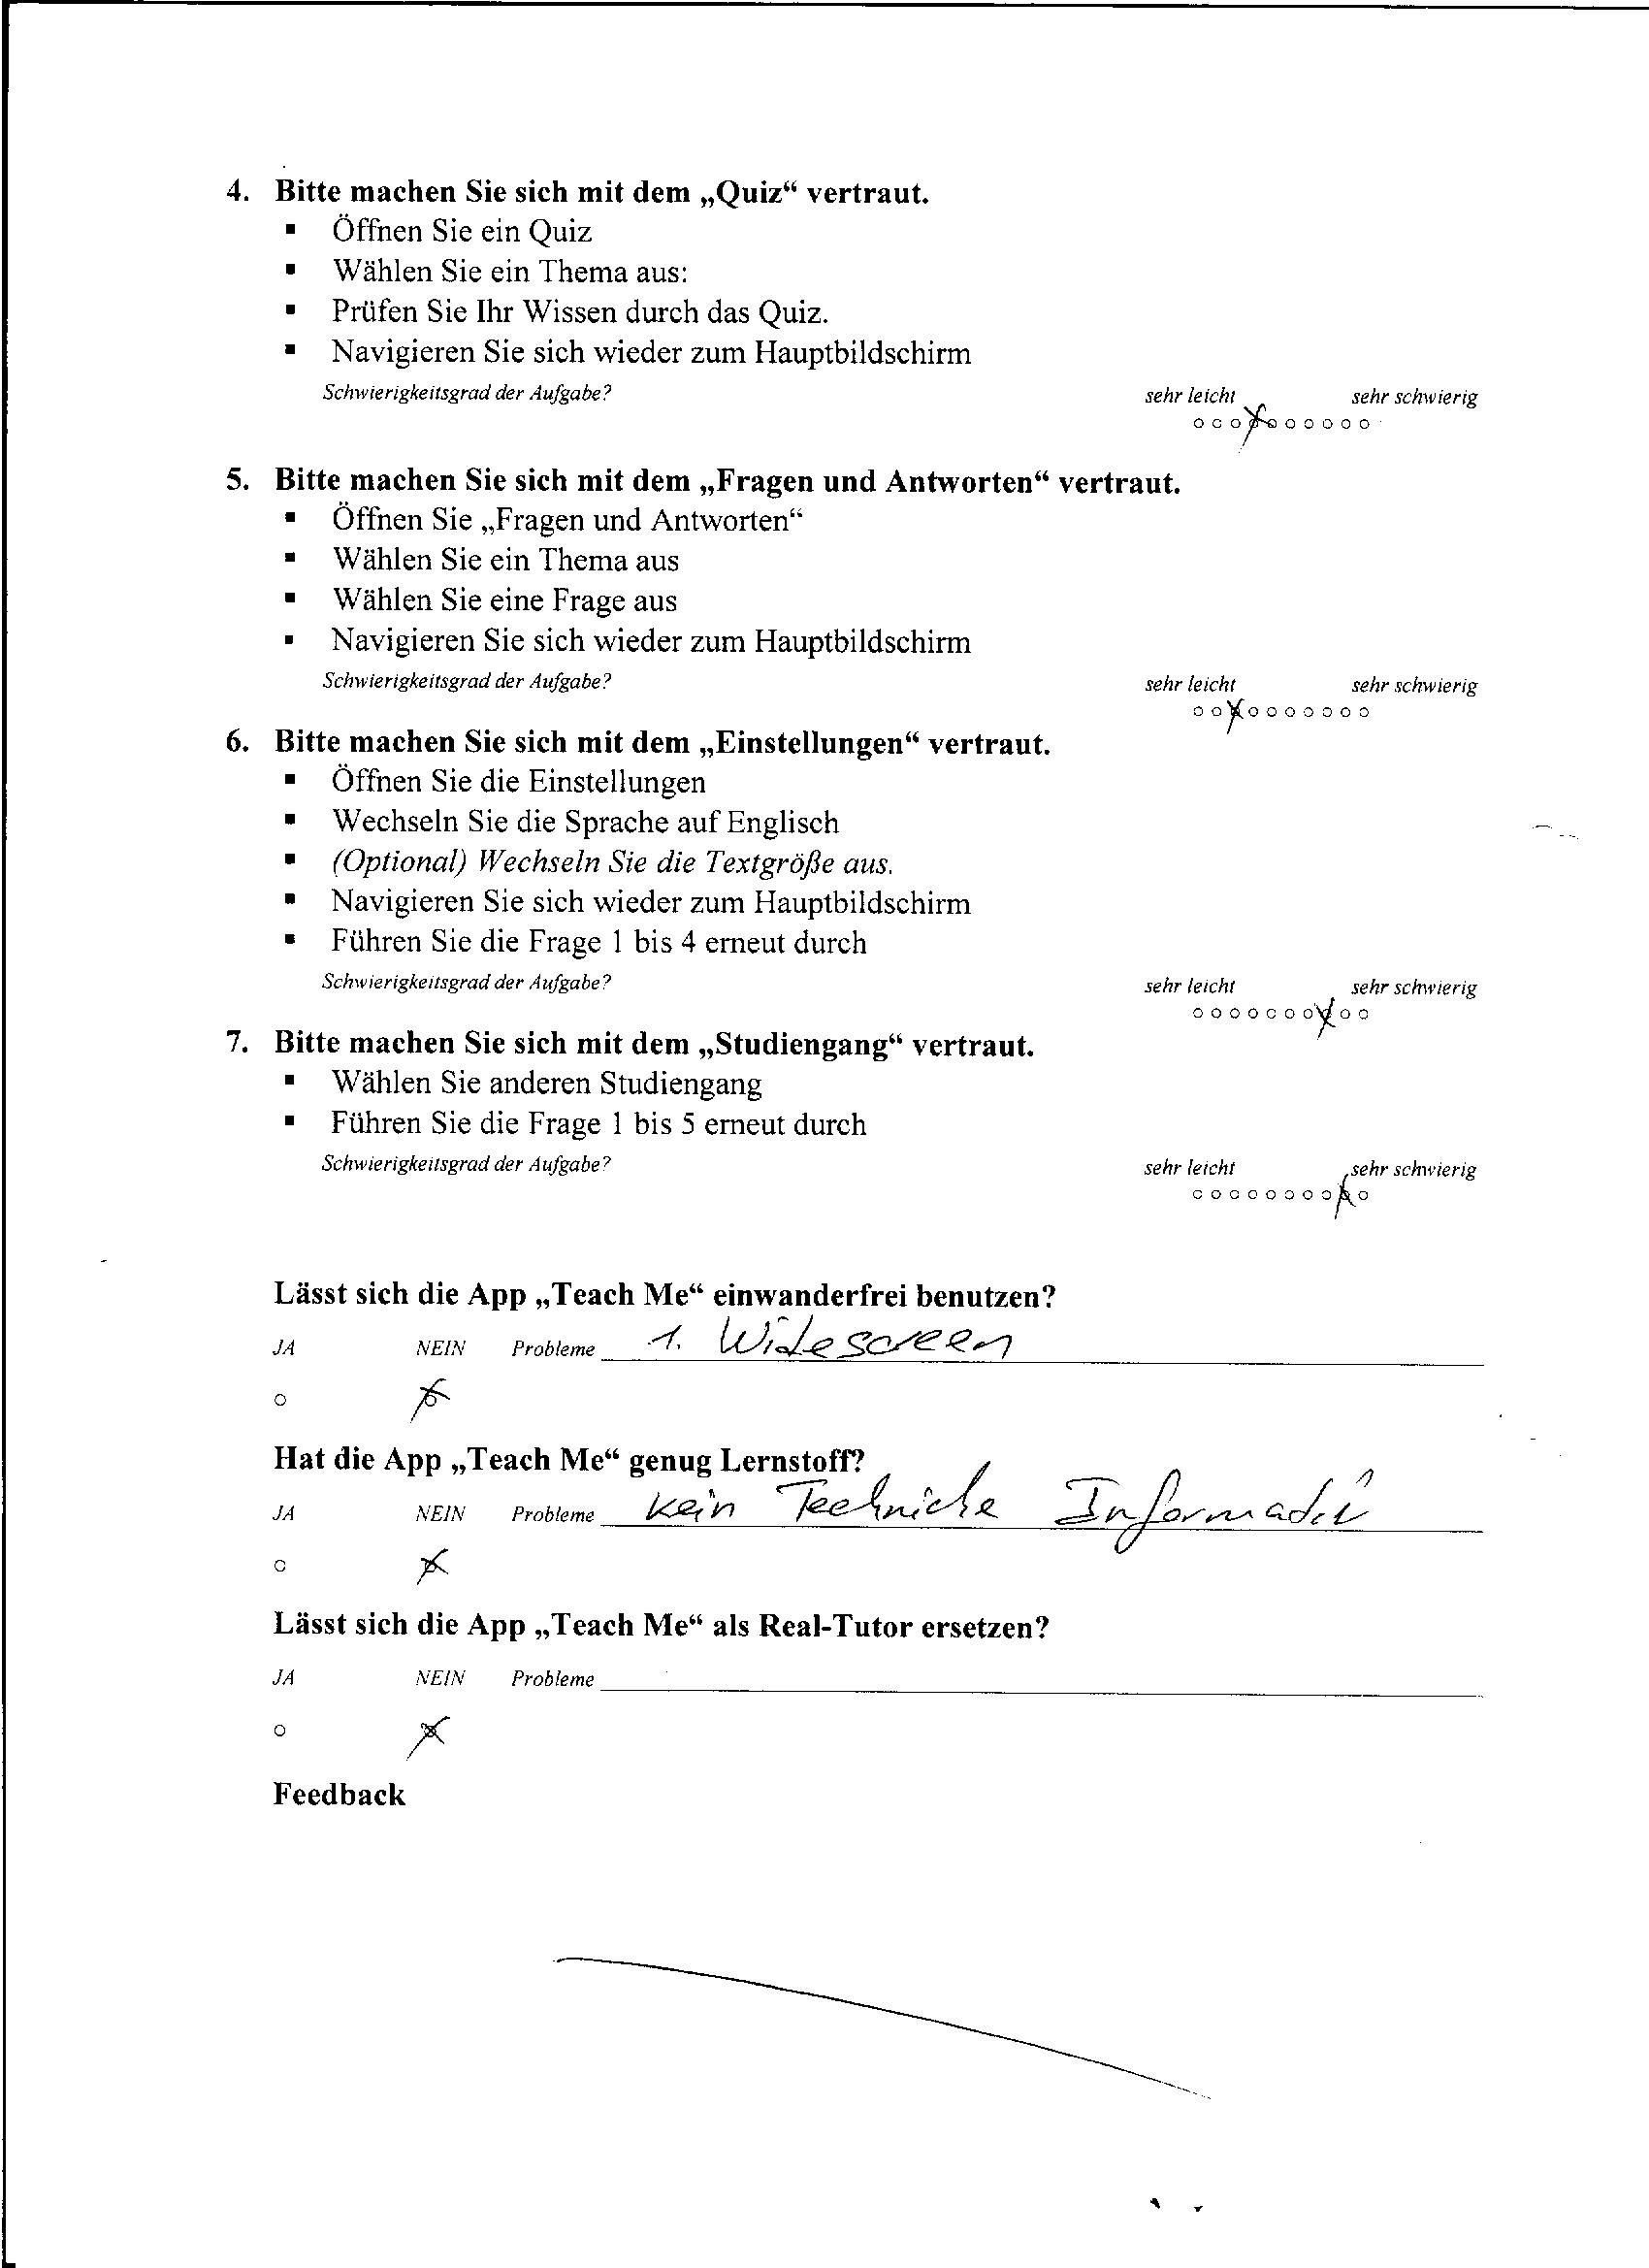 4. Bitte machen Sie sich mit dem „Quiz“ vertraut.
▪ Öffnen Sie ein Quiz
▪ Wählen Sie ein Thema aus:
▪ Prüfen Sie Ihr Wissen durch das Quiz.
▪ Navigieren Sie sich wieder zum Hauptbildschirm
Schwierigkeitsgrad der Aufgabe? sehr leicht sehr schwierig
5. Bitte machen Sie sich mit dem „Fragen und Antworten“ vertraut.
▪ Öffnen Sie „Fragen und Antworten“
▪ Wählen Sie ein Thema aus
▪ Wählen Sie eine Frage aus
▪ Navigieren Sie sich wieder zum Hauptbildschirm
Schwierigkeitsgrad der Aufgabe? sehr leicht sehr schwierig
6. Bitte machen Sie sich mit dem „Einstellungen“ vertraut.
▪ Öffnen Sie die Einstellungen
▪ Wechseln Sie die Sprache auf Englisch
▪ (Optional) Wechseln Sie die Textgröße aus.
▪ Navigieren Sie sich wieder zum Hauptbildschirm
▪ Führen Sie die Frage 1 bis 4 erneut durch
Schwierigkeitsgrad der Aufgabe? sehr leicht sehr schwierig
7. Bitte machen Sie sich mit dem „Studiengang“ vertraut.
▪ Wählen Sie anderen Studiengang
▪ Führen Sie die Frage 1 bis 5 erneut durch
Schwierigkeitsgrad der Aufgabe? sehr leicht sehr schwierig
Lässt sich die App „Teach Me“ einwanderfrei benutzen?
JA NEIN Probleme 1. Widescreen
Hat die App „Teach Me“ genug Lernstoff?
JA NEIN Probleme kein Techniche Informatik
Lässt sich die App „Teach Me“ als Real-Tutor ersetzen?
JA NEIN Probleme
Feedback